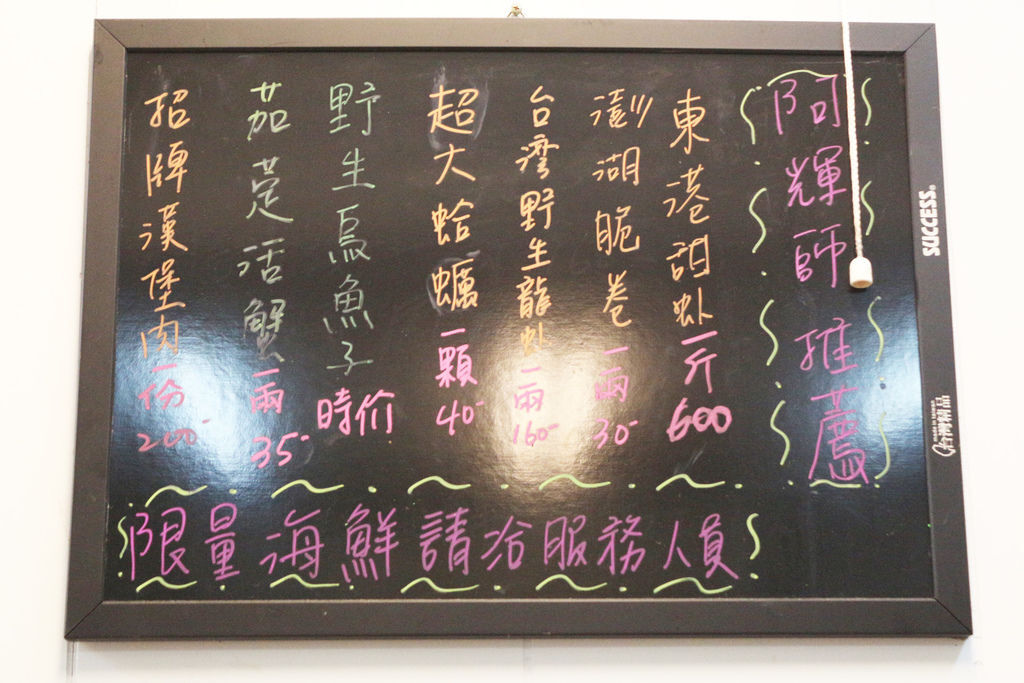 阿輝師推薦
東港甜虾一斤600
澎湖脆卷一兩30-
台灣野生龍虾一兩160-
超大蛤蠣一顆40-
野生烏魚子時价
茄萣活蟹一兩35-
招牌漢堡肉一份200-
限量海鮮請洽服務人員
SUCCESS®
made in taiwan
台灣精品